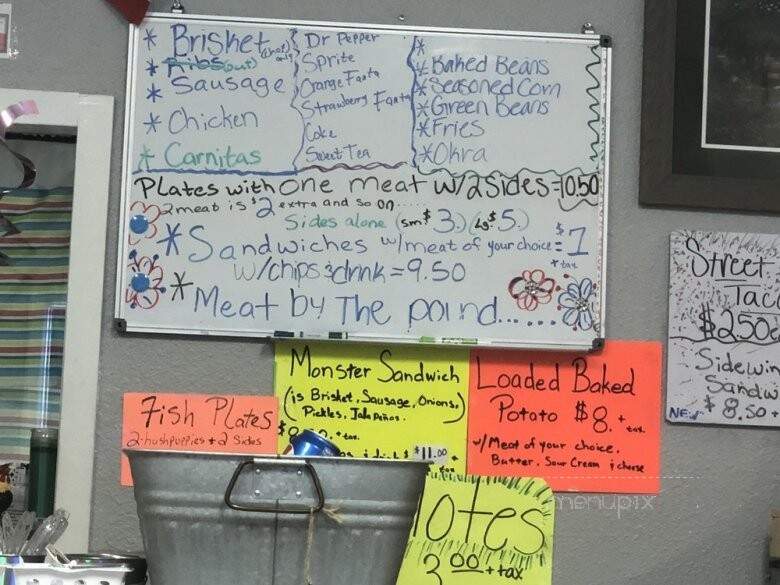 * Brisket
* Ribs (out)
* Sausage
* Chicken
* Carnitas
Dr Pepper
Sprite
Orange Fanta
Strawberry Fanta
Coke
Sweet Tea
*
* Baked Beans
* Seasoned Corn
* Green Beans
* Fries
* Okra
Plates with one meat w/2 sides = 10.50
2 meat is $2 extra and so on....
Sides alone (sm $3.) (Lg $5.)
* Sandwiches w/meat of your choice = $7
+ tax
w/chips & drink = 9.50
* Meat by The pound......
Street
Tac
$2.50
Sidewin
Sandw
NEW $8.50
Monster Sandwich
(is Brisket, Sausage, Onions,)
Pickles, Jalapeños.
+ tax
$11.00
+ tax
Loaded Baked
Potato $8. + tax
w/ Meat of your choice.
Butter, Sour Cream & cheese
Fish Plates
2-hushpuppies + 2 Sides
otes
00 + tax
menupix